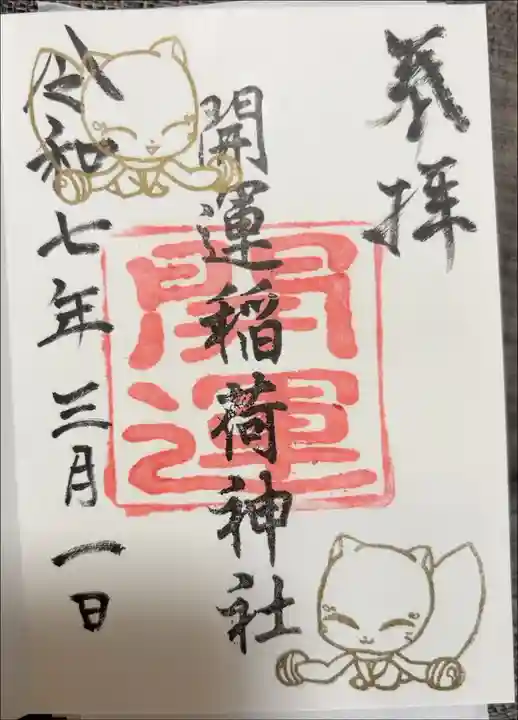 奉拝
開運稲荷神社
開運
令和七年三月一日